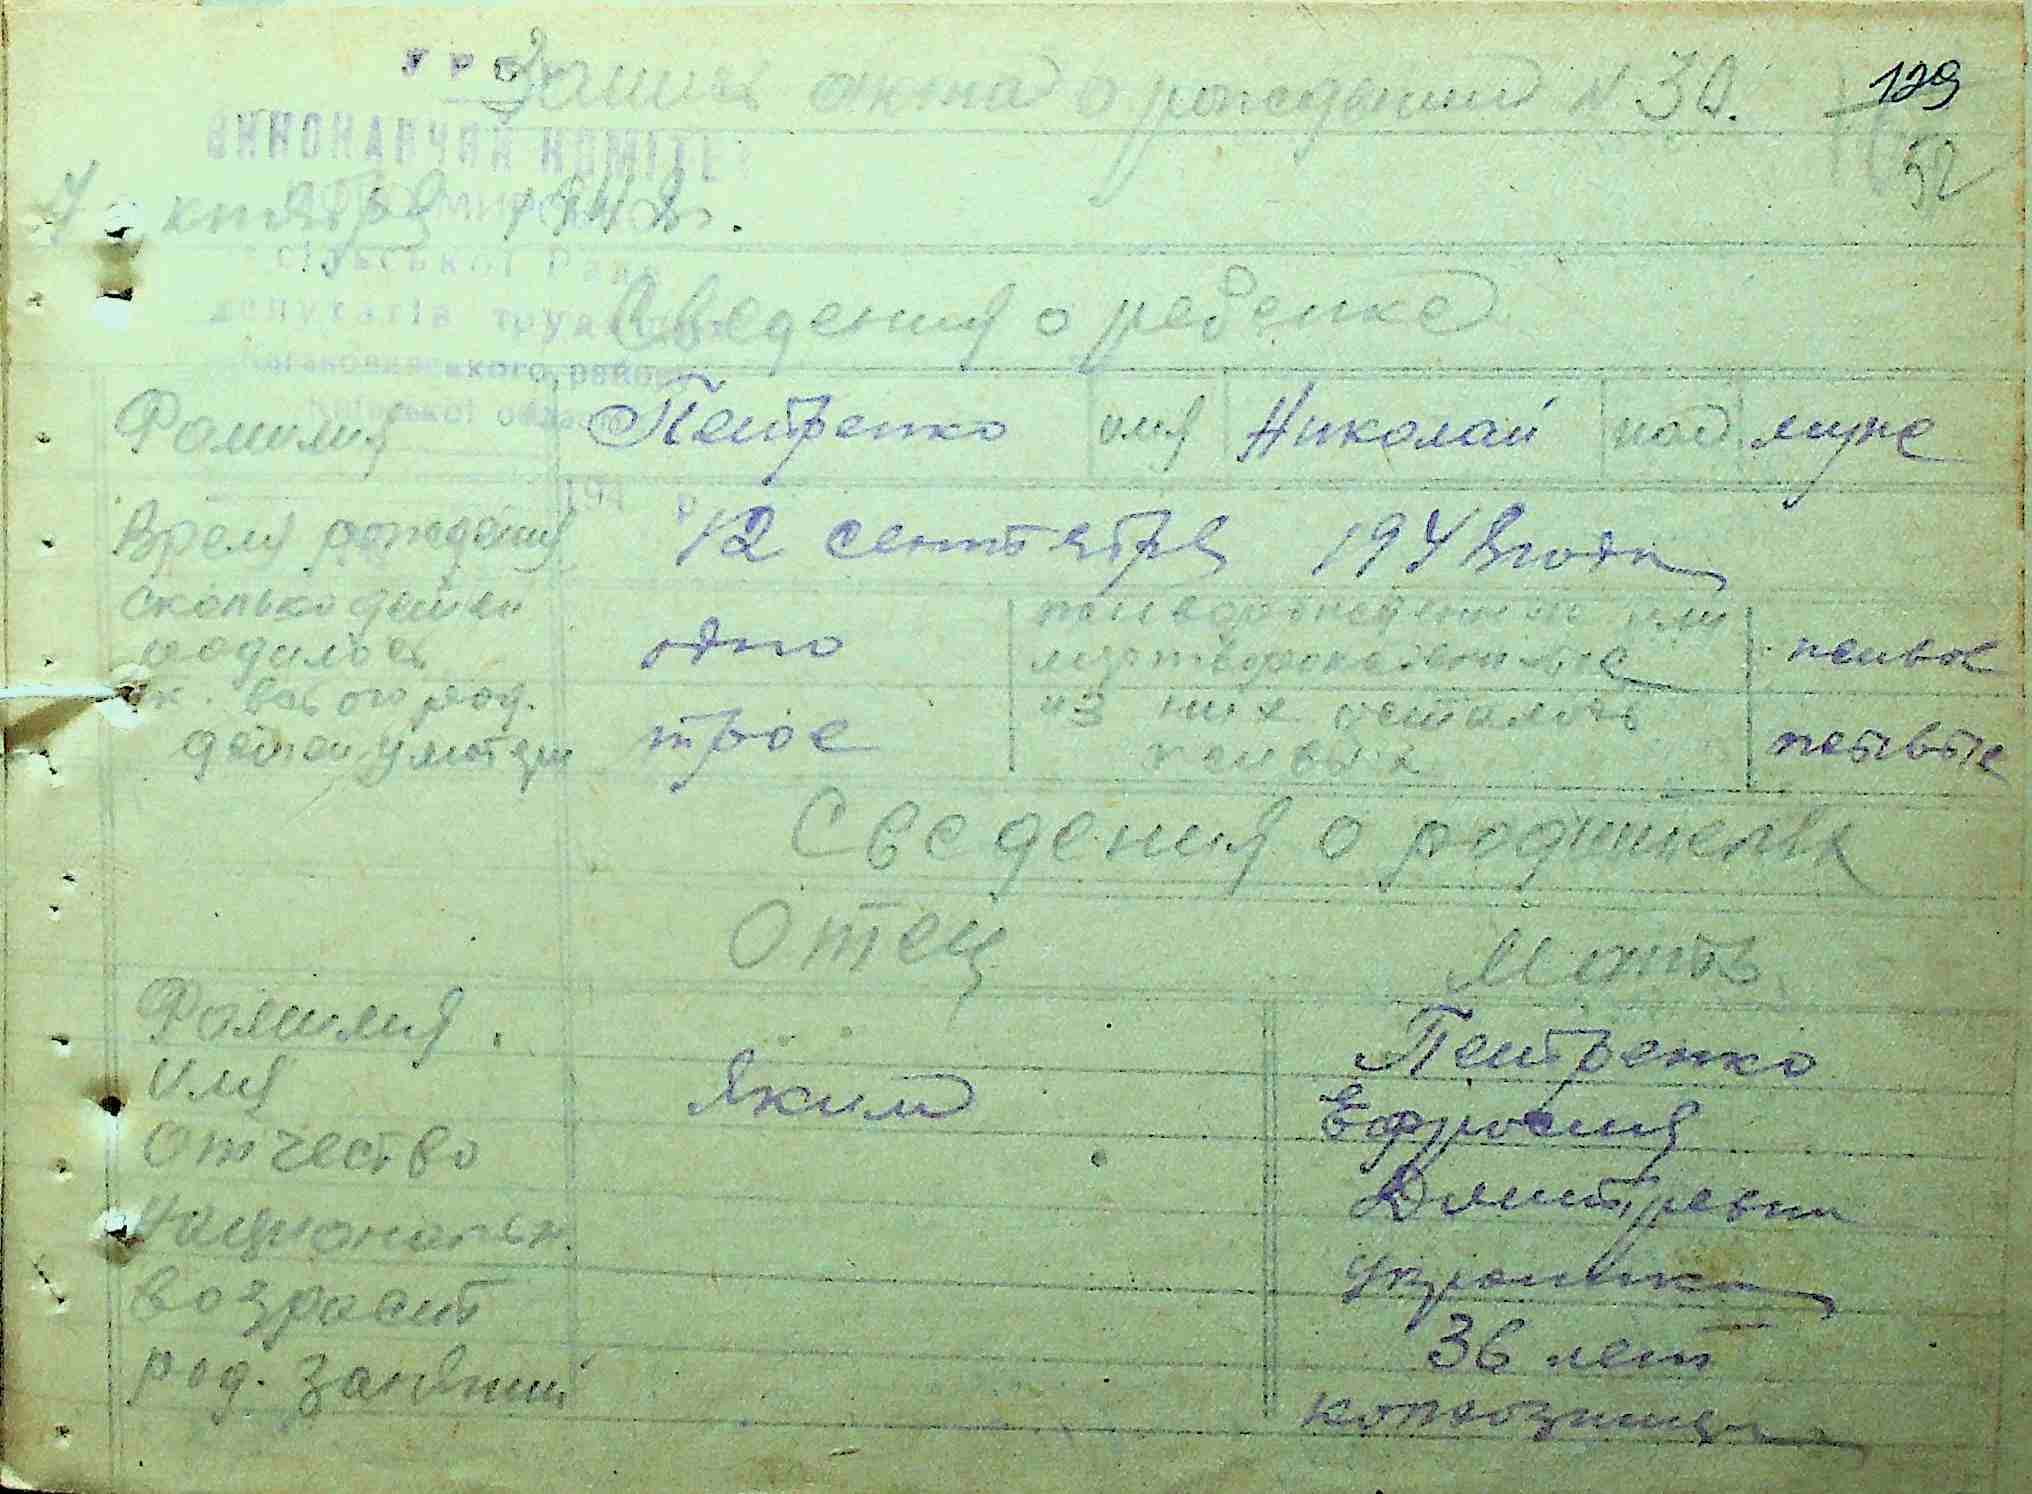 Запись акта о рождении N 30. 129
52
ВИКОНАВЧИЙ КОМІТЕТ
октября 194
сільської Ради
депутатів трудящих
Сведения о ребенке
району
Київської області
Фамилия Петренко имя Николай пол муж
Время рождения 12 сентября 194 года
Сколько детей одно живорожденных или живое
родилось мертворожденных
ск. всего род. трое из них осталось живые
детей у матери живых
Сведения о родителях
Отец Мать
Фамилия Петренко
Имя Яким Ефросиня
Отчество
Национальн. украинка
возраст 36 лет
род. занятий колхозница